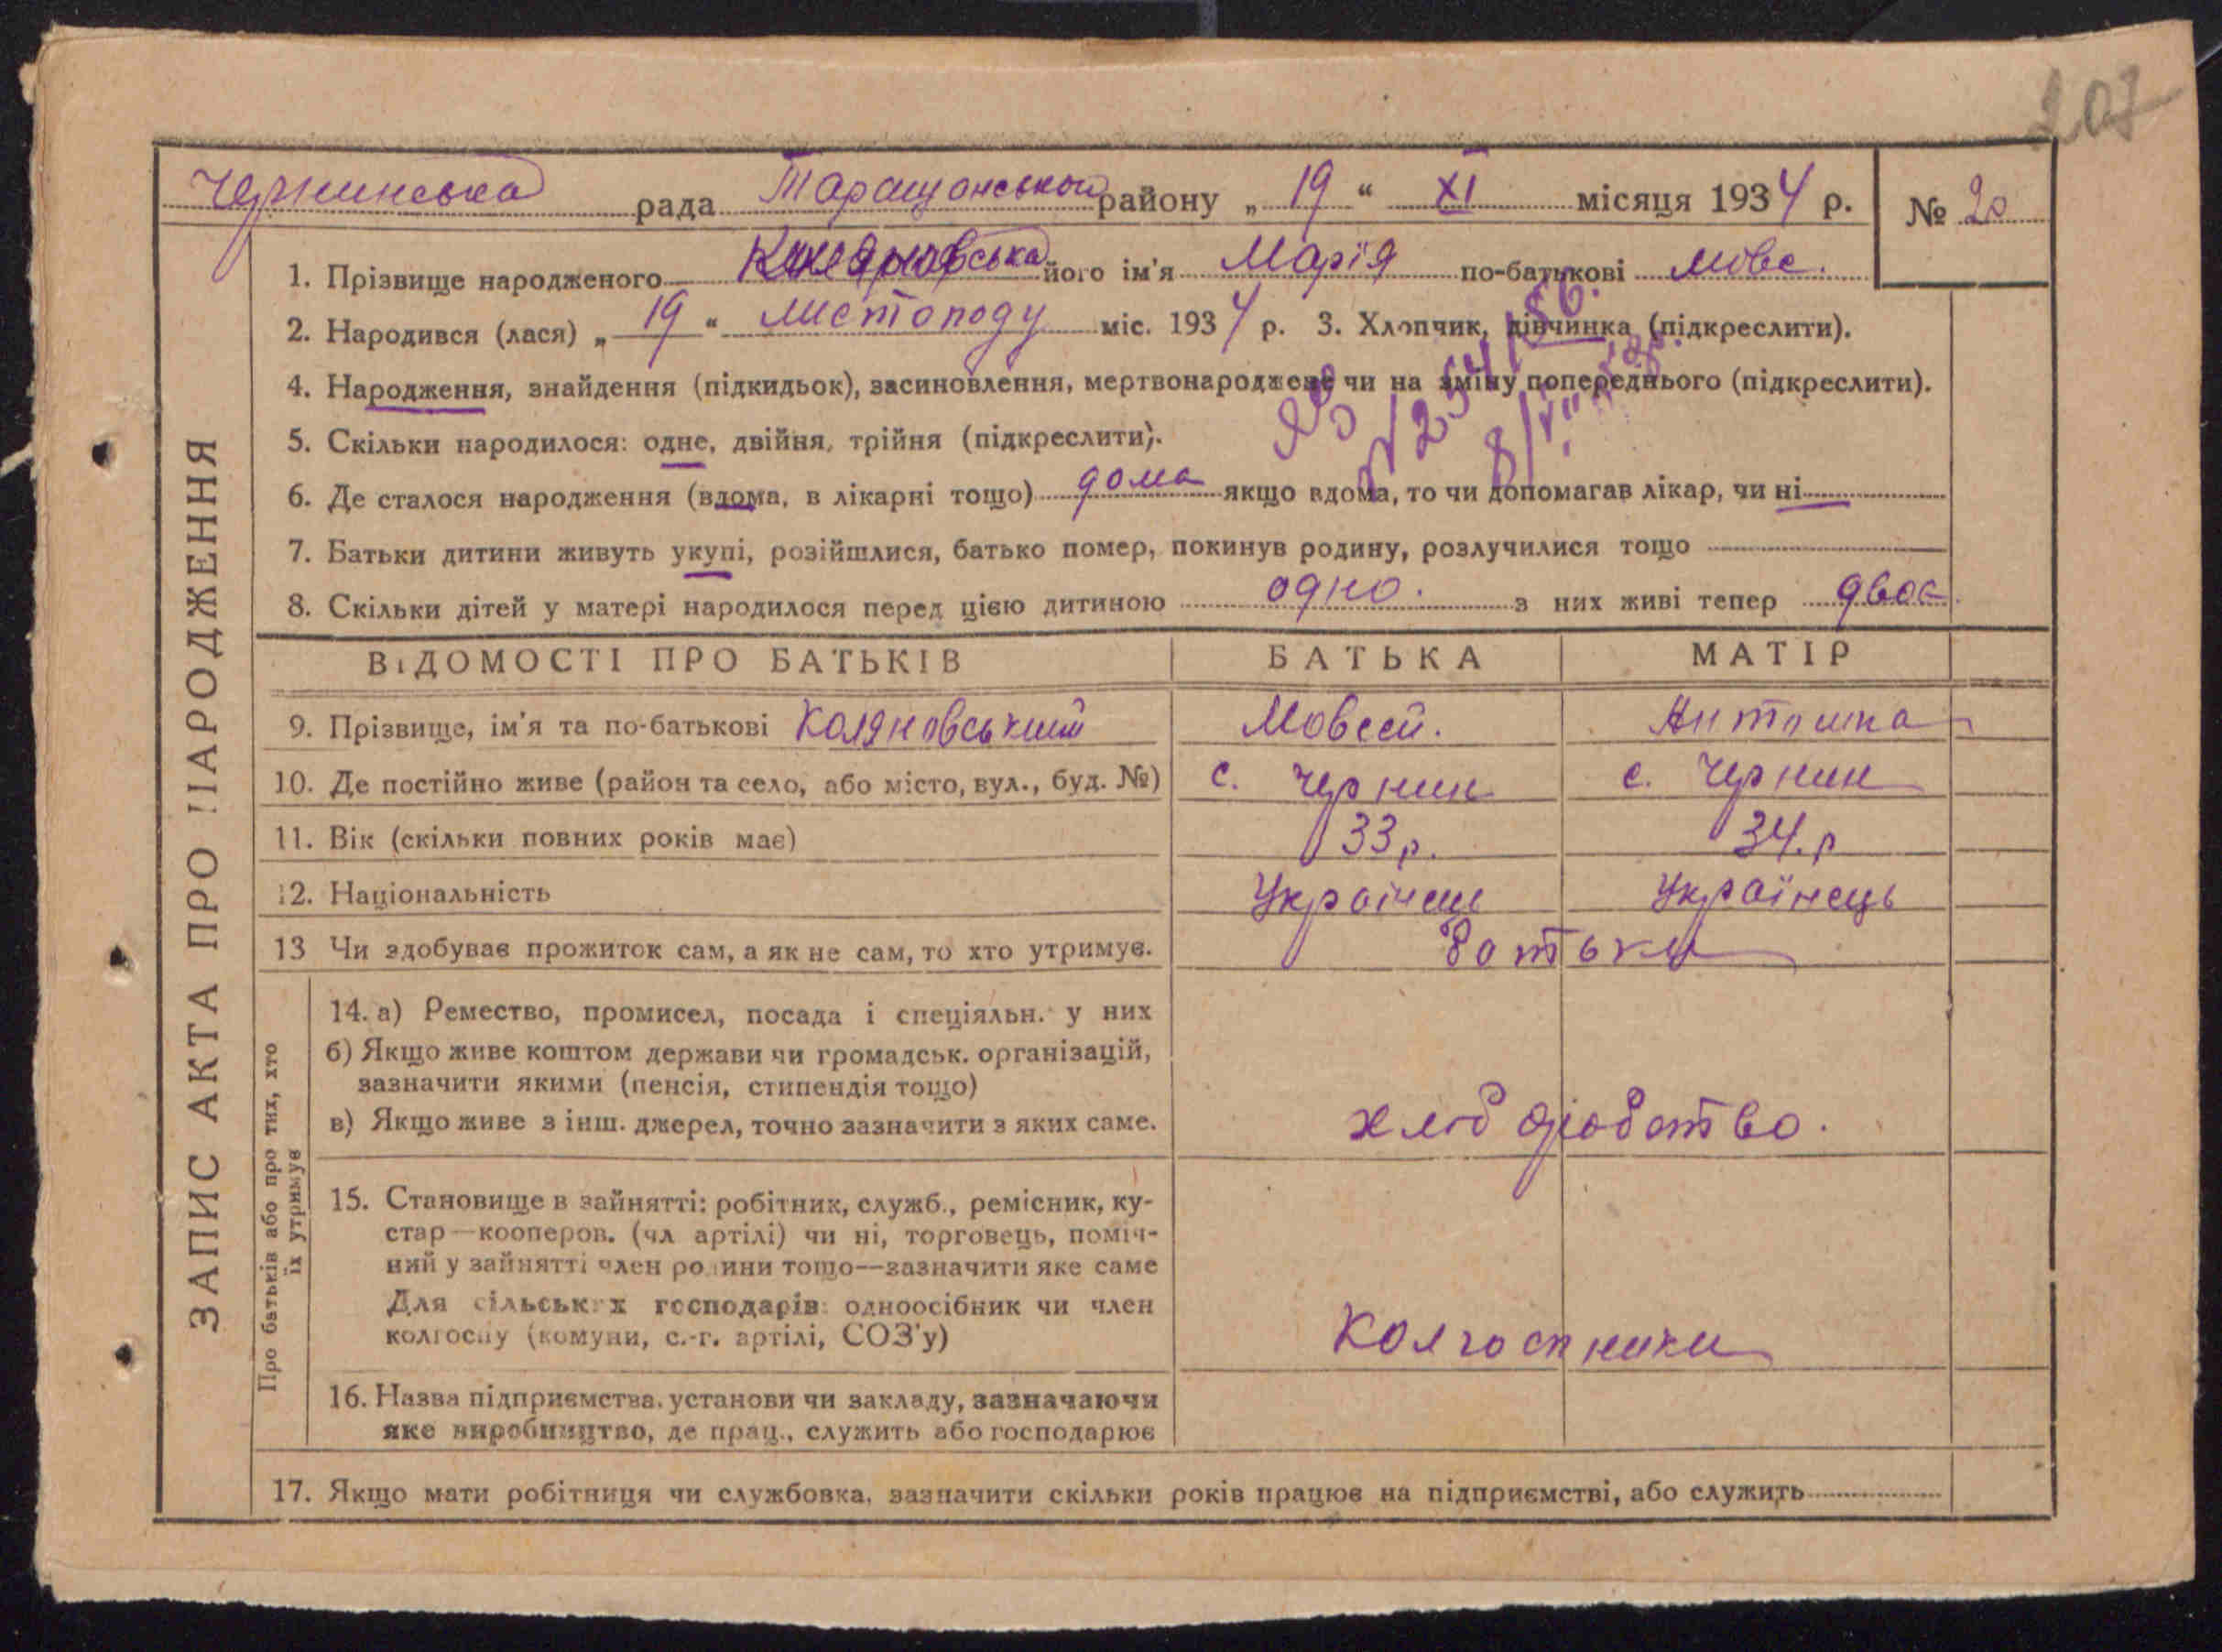 207
Чернинська рада Таращанського району „ 19 “ XI місяця 1934 р. № 20
1. Прізвище народженого його ім'я Марія по-батькові Мовс.
2. Народився (лася) „ 19 “ листопаду міс. 1934 р. 3. Хлопчик, дівчинка (підкреслити).
4. Народження, знайдення (підкидьок), засиновлення, мертвонароджене чи на зміну попереднього (підкреслити).
5. Скільки народилося: одне, двійня, трійня (підкреслити).
6. Де сталося народження (вдома, в лікарні тощо) дома якщо вдома, то чи допомагав лікар, чи ні
7. Батьки дитини живуть укупі, розійшлися, батько помер, покинув родину, розлучилися тощо
8. Скільки дітей у матері народилося перед цією дитиною одно. з них живі тепер двоє
ВІДОМОСТІ ПРО БАТЬКІВ БАТЬКА МАТІР
9. Прізвище, ім'я та по-батькові Коляновський Мовсей. Антошка
10. Де постійно живе (район та село, або місто, вул., буд. №) с. Чернин с. Чернин
11. Вік (скільки повних років має) 33 р. 34. р
12. Національність Українец Українець
13 Чи здобував прожиток сам, а як не сам, то хто утримує. батьки
14. а) Ремество, промисел, посада і спеціяльн. у них
б) Якщо живе коштом держави чи громадськ. організацій,
зазначити якими (пенсія, стипендія тощо)
в) Якщо живе з інш. джерел, точно зазначити з яких саме. хліборобство.
15. Становище в зайнятті: робітник, служб., ремісник, ку-
стар—кооперов. (чл артілі) чи ні, торговець, поміч-
ний у зайнятті член родини тощо—зазначити яке саме
Для сільських господарів: одноосібник чи член
колгоспу (комуни, с.-г. артілі, СОЗ'у) Колгоспники
16. Назва підприємства, установи чи закладу, зазначаючи
яке виробництво, де прац., служить або господарює
17. Якщо мати робітниця чи службовка, зазначити скільки років працює на підприємстві, або служить
ЗАПИС АКТА ПРО НАРОДЖЕННЯ
Про батьків або про тих, хто
їх утримує